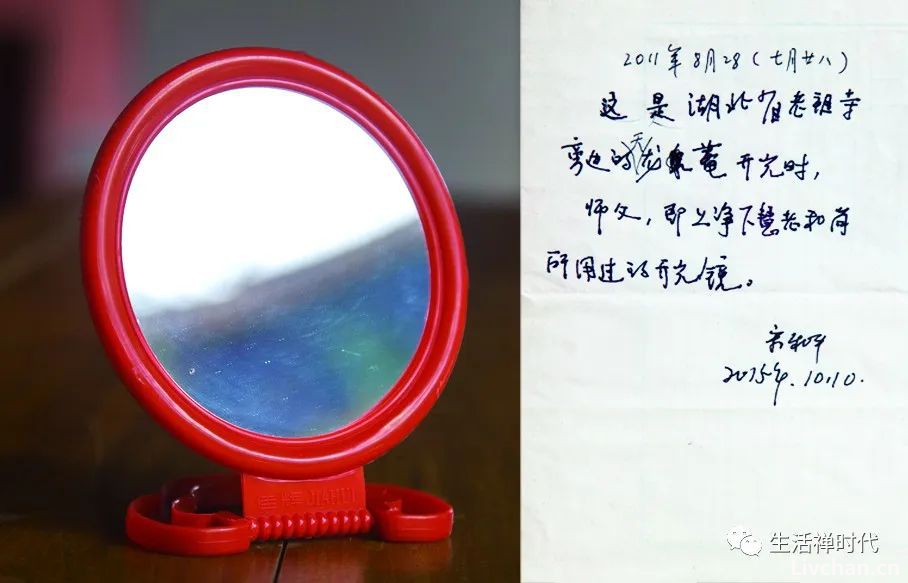 2011年8月28（七月廿八）
这是湖北省老祖寺
旁边的庵开光时，
师父，即上净下慧老和尚
所用过的开光镜。
2015年.10.10.
生活禅时代
Livchan.cn